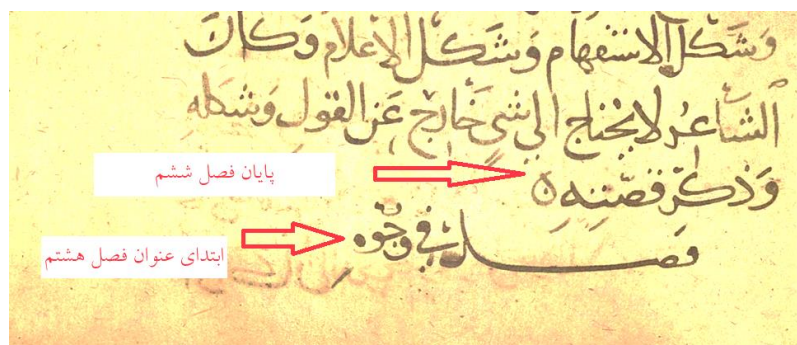 وَشَكل الاستفهام وَشَكل الاعلام وَكانَ
الشاعرُ لا يحتاج الى شىٍ خَارجٍ عَن القول وَشكله
پایان فصل ششم
وَذكرَ قصّته ٥
ابتدای عنوان فصل هشتم
فصل فى وجوه